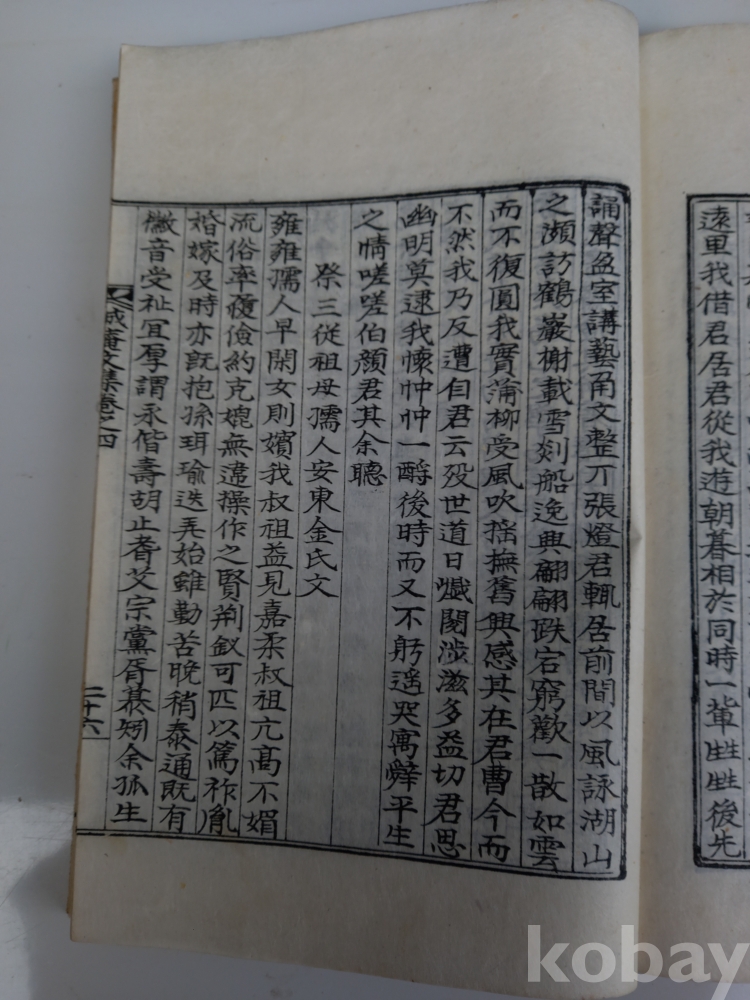 遠里我借君居君從我遊朝暮相於同時一輩甡甡後先
誦聲盈室講藝角文整丌張燈君輒居前間以風詠湖山
之瀕訪鶴巖榭載雪剡船逸興翩翩跌宕窮歡一散如雲
而不復圓我實蒲柳受風吹搖撫舊興感其在君曹今而
不然我乃反遭自君云歿世道日巇閱涉滋多益切君思
幽明莫逮我懷忡忡一酹後時而又不躬遥哭寓辭平生
之情嗟嗟伯顔君其余聽
祭三從祖母孺人安東金氏文
雍雍孺人早閑女則嬪我叔祖益見嘉柔叔祖亢髙不媚
流俗率履儉約克媲無違操作之賢荆釵可匹以篤祚胤
婚嫁及時亦旣抱孫珥瑜迭弄始雖勤苦晚稍泰通旣有
徽音受祉宜厚謂永偕壽胡止耆艾宗黨胥慕矧余孤生
文集卷之四
二十六
kobay